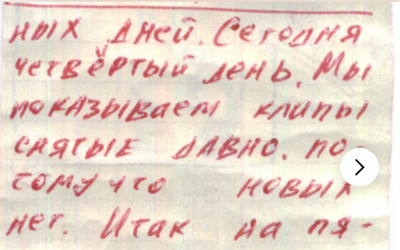 ных дней. Сегодня
четвёртый день. Мы
показываем клипы
снятые давно. по-
тому что новых
нет. Итак на пя-